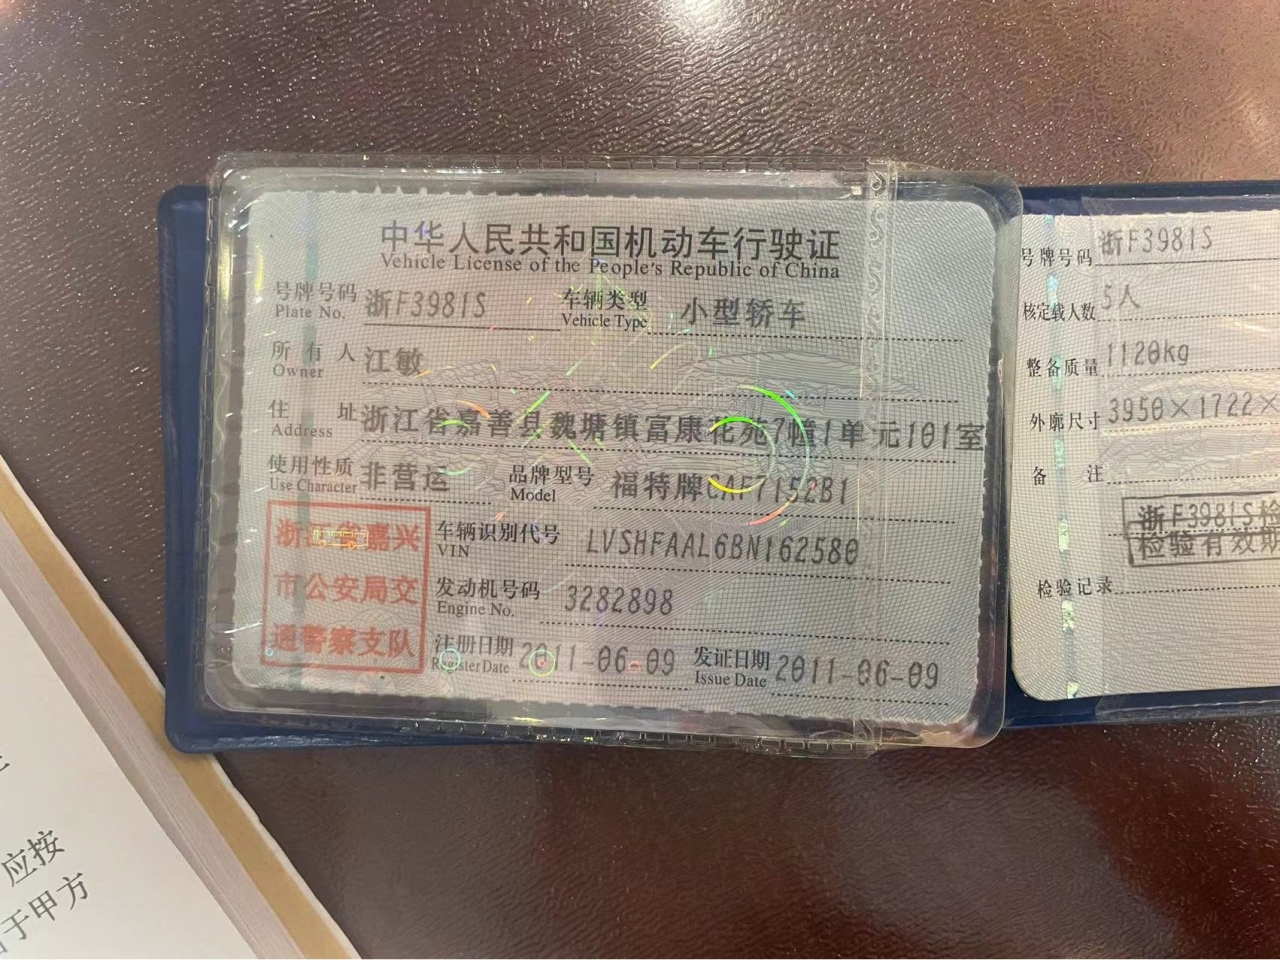 中华人民共和国机动车行驶证
Vehicle License of the People's Republic of China
号牌号码 浙F3981S 车辆类型 小型轿车
Plate No. Vehicle Type
所有人 江敏
Owner
住址 浙江省嘉善县魏塘镇富康花苑7幢1单元101室
Address
使用性质 非营运 品牌型号 福特牌CAF7152B1
Use Character Model
浙江省嘉兴
市公安局交
通警察支队
车辆识别代号 LVSHFAAL6BN162580
VIN
发动机号码 3282898
Engine No.
注册日期 2011-06-09 发证日期 2011-06-09
Register Date Issue Date
号牌号码 浙F3981S
核定载人数 5人
整备质量 1120kg
外廓尺寸 3950×1722×
备注
浙F3981S检
检验有效期
检验记录
应按
于甲方